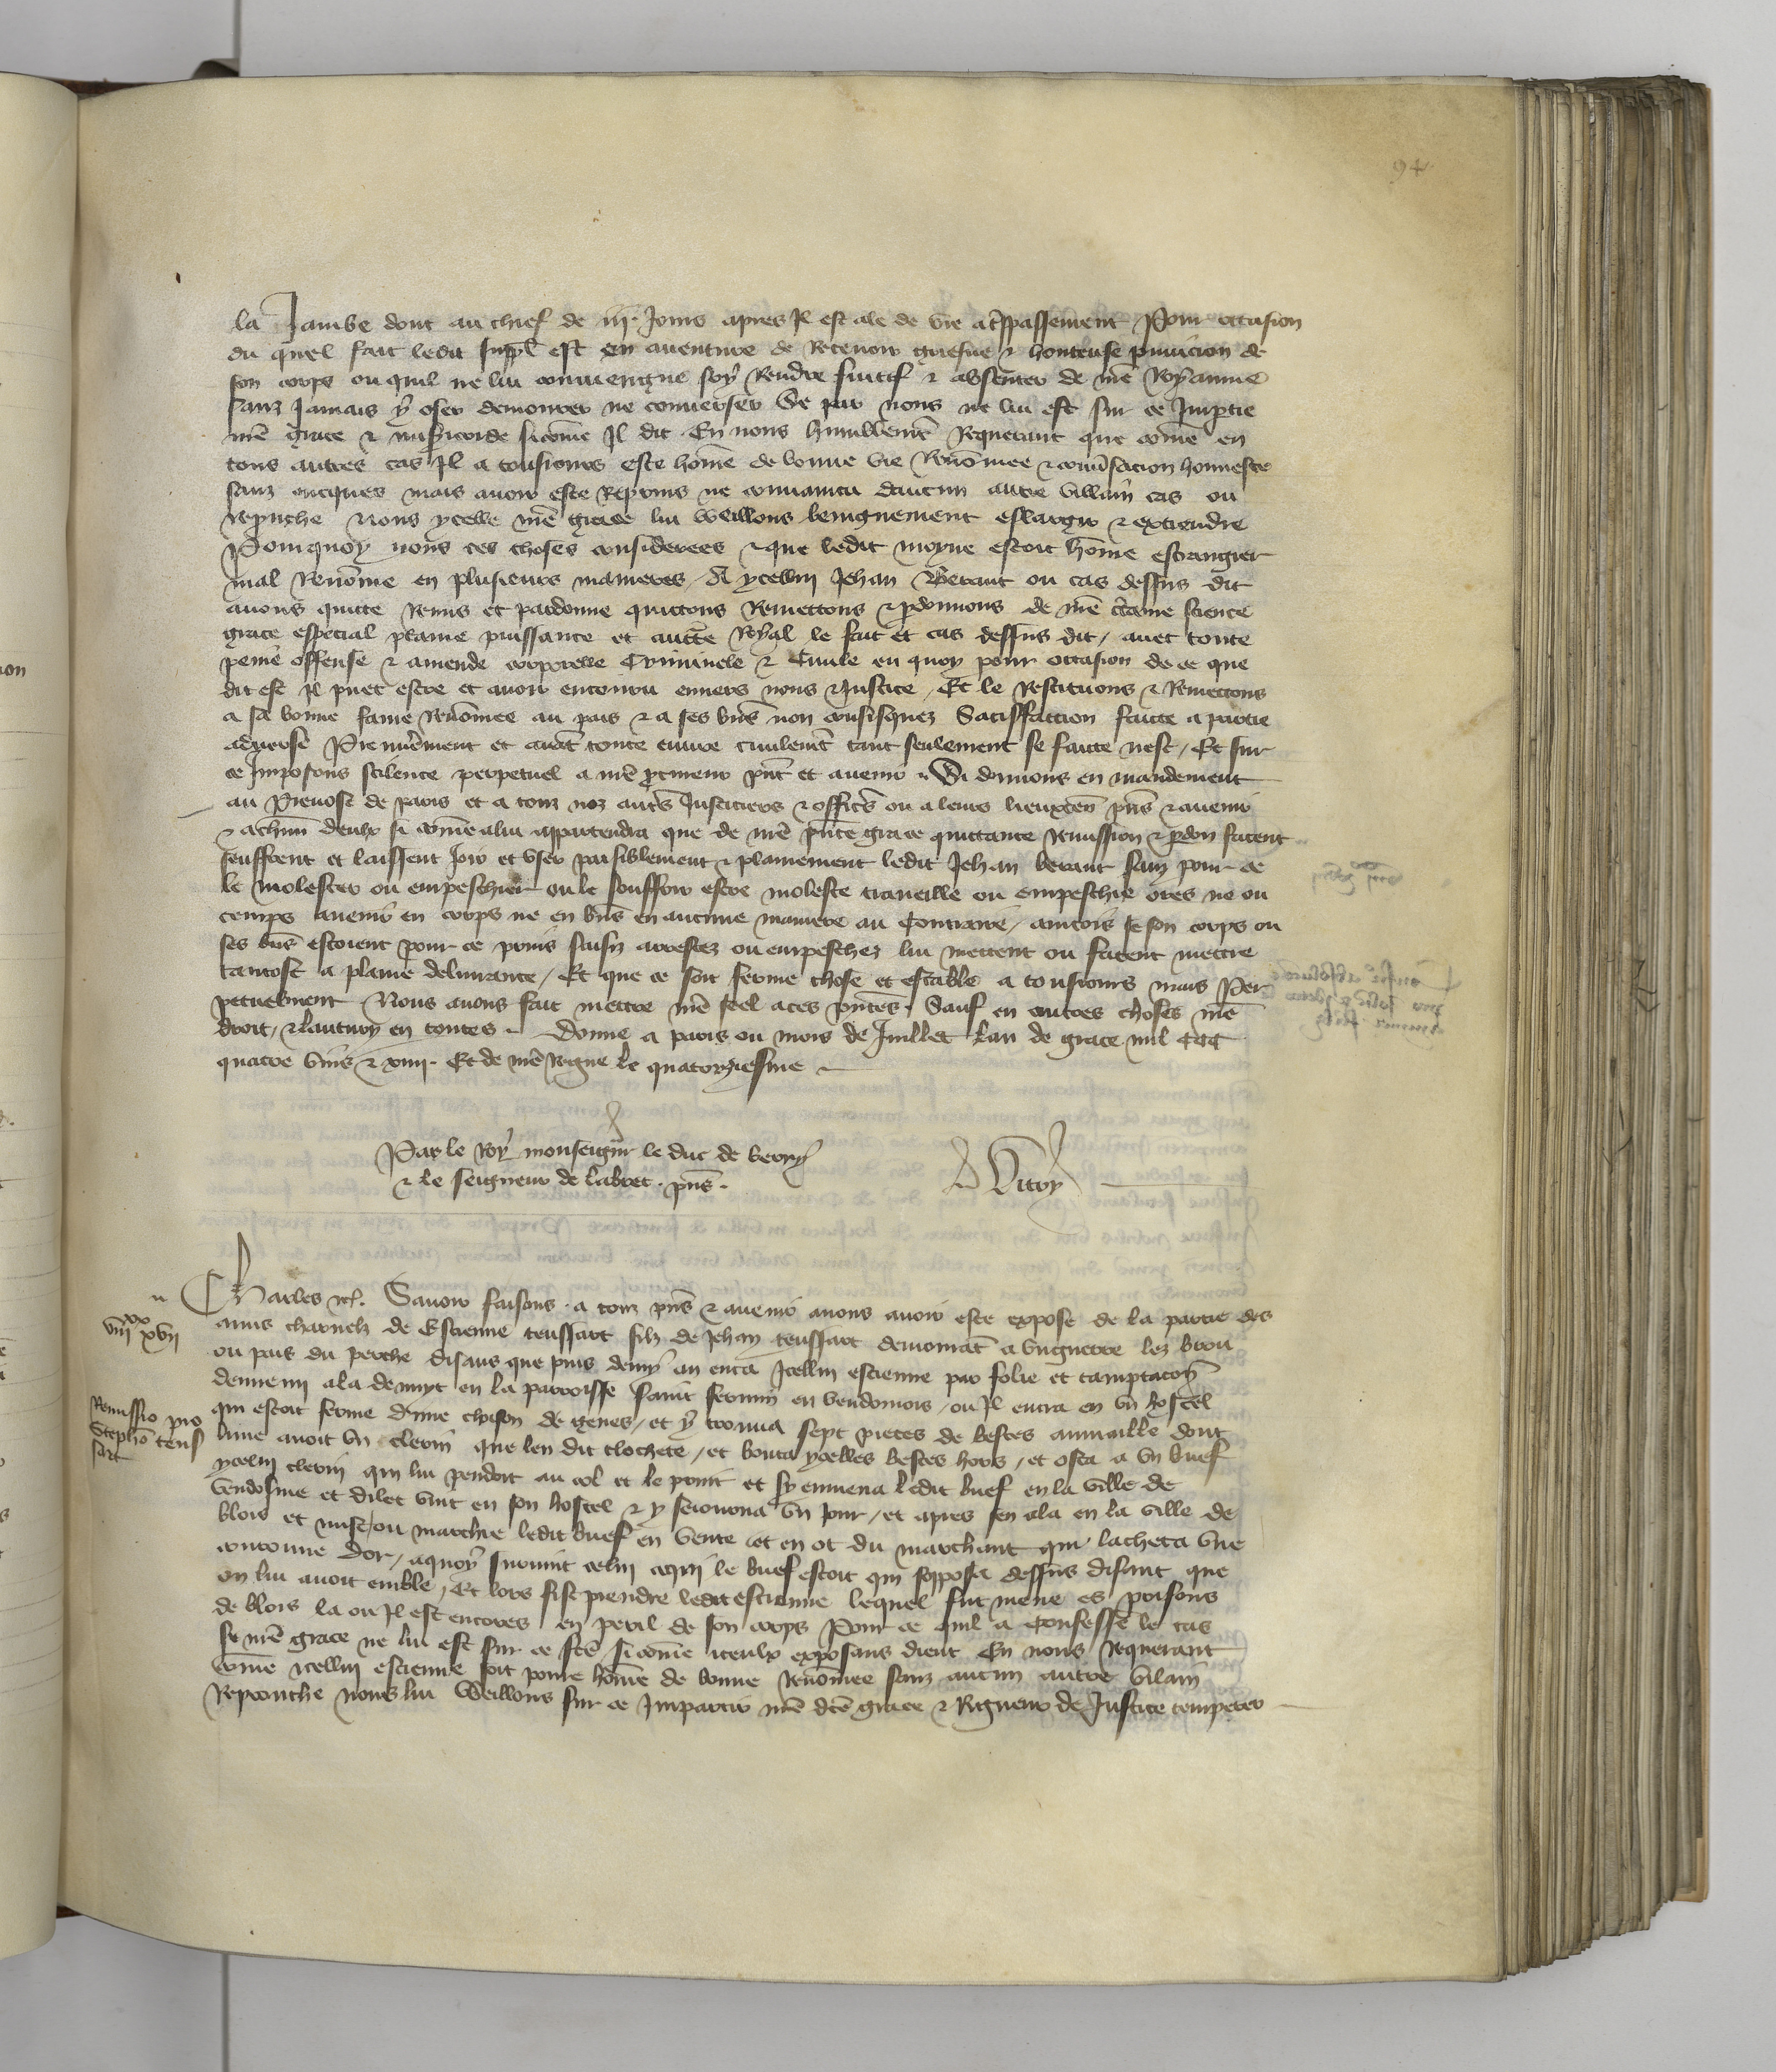 94
la Jambe dont au chief de iij. Jours apres Il est ale de vie a t̃spassement Pour occasion
du quel fait ledit suppl̃ est en aventure de Recevoir griefve & honteuse punicion de
son corps ou quil ne lui conviengne soy Rendre fuitif & absenter de nr̃e Royaume
sanz Jamais y oser demourer ne converser Se par nous ne lui est sur ce Impartie
nr̃e grace & misericorde si cõme Il dit En nous humblemẽt Requerant que cõme en
tous autres cas Il a tousiours este hõme de bonne vie Renõmee & conv̾sacion honneste
sanz oncques mais avoir este Repris ne convaincu daucun autre villain cas ou
reprouche Nous ycelle nr̃e grace lui vueillons benignement eslargir & extendre
Pourquoy nous ces choses considerees & que ledit moyne estoit hõme estrangier
mal Renõme en plusieurs manieres A ycellui Jehan Beraut ou cas dessus dit
avons quitte Remis et pardonne quittons Remettons & p̱donnons de nr̃e c̃taine science
grace especial plaine puissance et auct̃e Royal le fait et cas dessus dit / avec toute
peine offense & amende corporelle Criminele & Civile en quoy pour occasion de ce que
dit est Il puet estre et avoir encouru envers nous & Justice / Et le Restituons & Remettons
a sa bonne fame Renõmee au pais & a ses biẽs non confisquez Satisffaccion faicte a partie
adverse Premierement et avãt toute euvre civilemẽt tant seulement se faicte nest / Et sur
ce Imposons scilence perpetuel a nr̃e procureur pñt et avenir Si donnons en mandement
au Prevost de Paris et a touz noz aut̃s Justiciers & offic̃s ou a leurs lieuxten̄ pñs & avenir
& a chũn deulx si cõme a lui appartendra que de nr̃e pñte grace quittance Remission & p̱don facent
seuffrent et laissent Joir et user paisiblement & plainement ledit Jehan beraut sanz pour ce
le molester ou empeschier ou le souffrir estre moleste traveillie ou empeschie ores ne ou
temps avenir en corps ne en biẽs en aucune maniere au Contraire / aincois se son corps ou
ses biẽs estoient pour ce prins saisiz arrestez ou empeschez lui mettent ou facent mettre
tantost a plaine delivrance / Et que ce soit ferme chose et estable a tousiours mais Per
petuelment Nous avons fait mettre nr̃e seel a ces pñtes Sauf en autres choses nr̃e
droit / & lautruy en toutes Donne a paris ou mois de Juillet Lan de grace mil CCC
quatre vins & xiiii. Et de nr̃e regne le quatorziesme
Par le Roy monseignr le duc de berry
& le seigneur de labret. pñs.
Vitry
Charles &c̃. Savoir faisons. a touz pñs & avenir avons avoir este expose de la partie des
viii xx xvii
amis charnelz de Estienne teussart filz de Jehan teussart demourãt a unguerre lez brou
ou pais du perche disans que puis demy an enca Icellui estienne par folie et temptacõn
dennemi ala de nuyt en la parroisse saint fermin en vendomois / ou Il entra en un hostel
Remissio pro
Stepho teus
sart
qui estoit ferme dune choison de genes / et y trouva sept pieces de bestes aumaille dont
lune avoit un clerin que len dit clochete / et bouta ycelles bestes hors / et osta a un buef
ycelui clerin qui lui pendoit au col et le print et sy enmena ledit buef en la ville de
Vendosme et dilec vint en son hostel & y seiourna un jour / et apres sen ala en la ville de
blois et mist ou marchie ledit buef en vente et en ot du marchant qui lacheta une
couronne dor / a quoy survint celui a qui le buef estoit qui sopposa dessus disant que
on lui avoit emble / Et lors fist prendre ledit estienne lequel fut mene es prisons
de blois la ou Il est encores en peril de son corps Pour ce quil a Confesse le cas
se nr̃e grace ne lui est sur ce fc̃e si cõme iceulx exposans dient En nous requerant
cõme icellui estienne soit povre hõme de bonne Renõmee sanz aucun autre vilain
Reprouche nous lui vueillons sur ce Impartir nr̃e dc̃e grace & Rigueur de Justice temperer